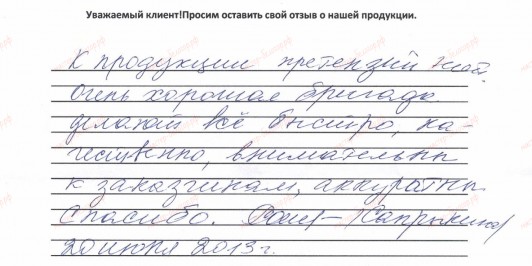 Уважаемый клиент!Просим оставить свой отзыв о нашей продукции.
К продукции претензий нет.
Очень хорошая бригада.
делают всё быстро, ка-
чественно, внимательны
к заказчикам, аккуратны.
Спасибо. /Сапрыкина/
20 июня 2013 г.